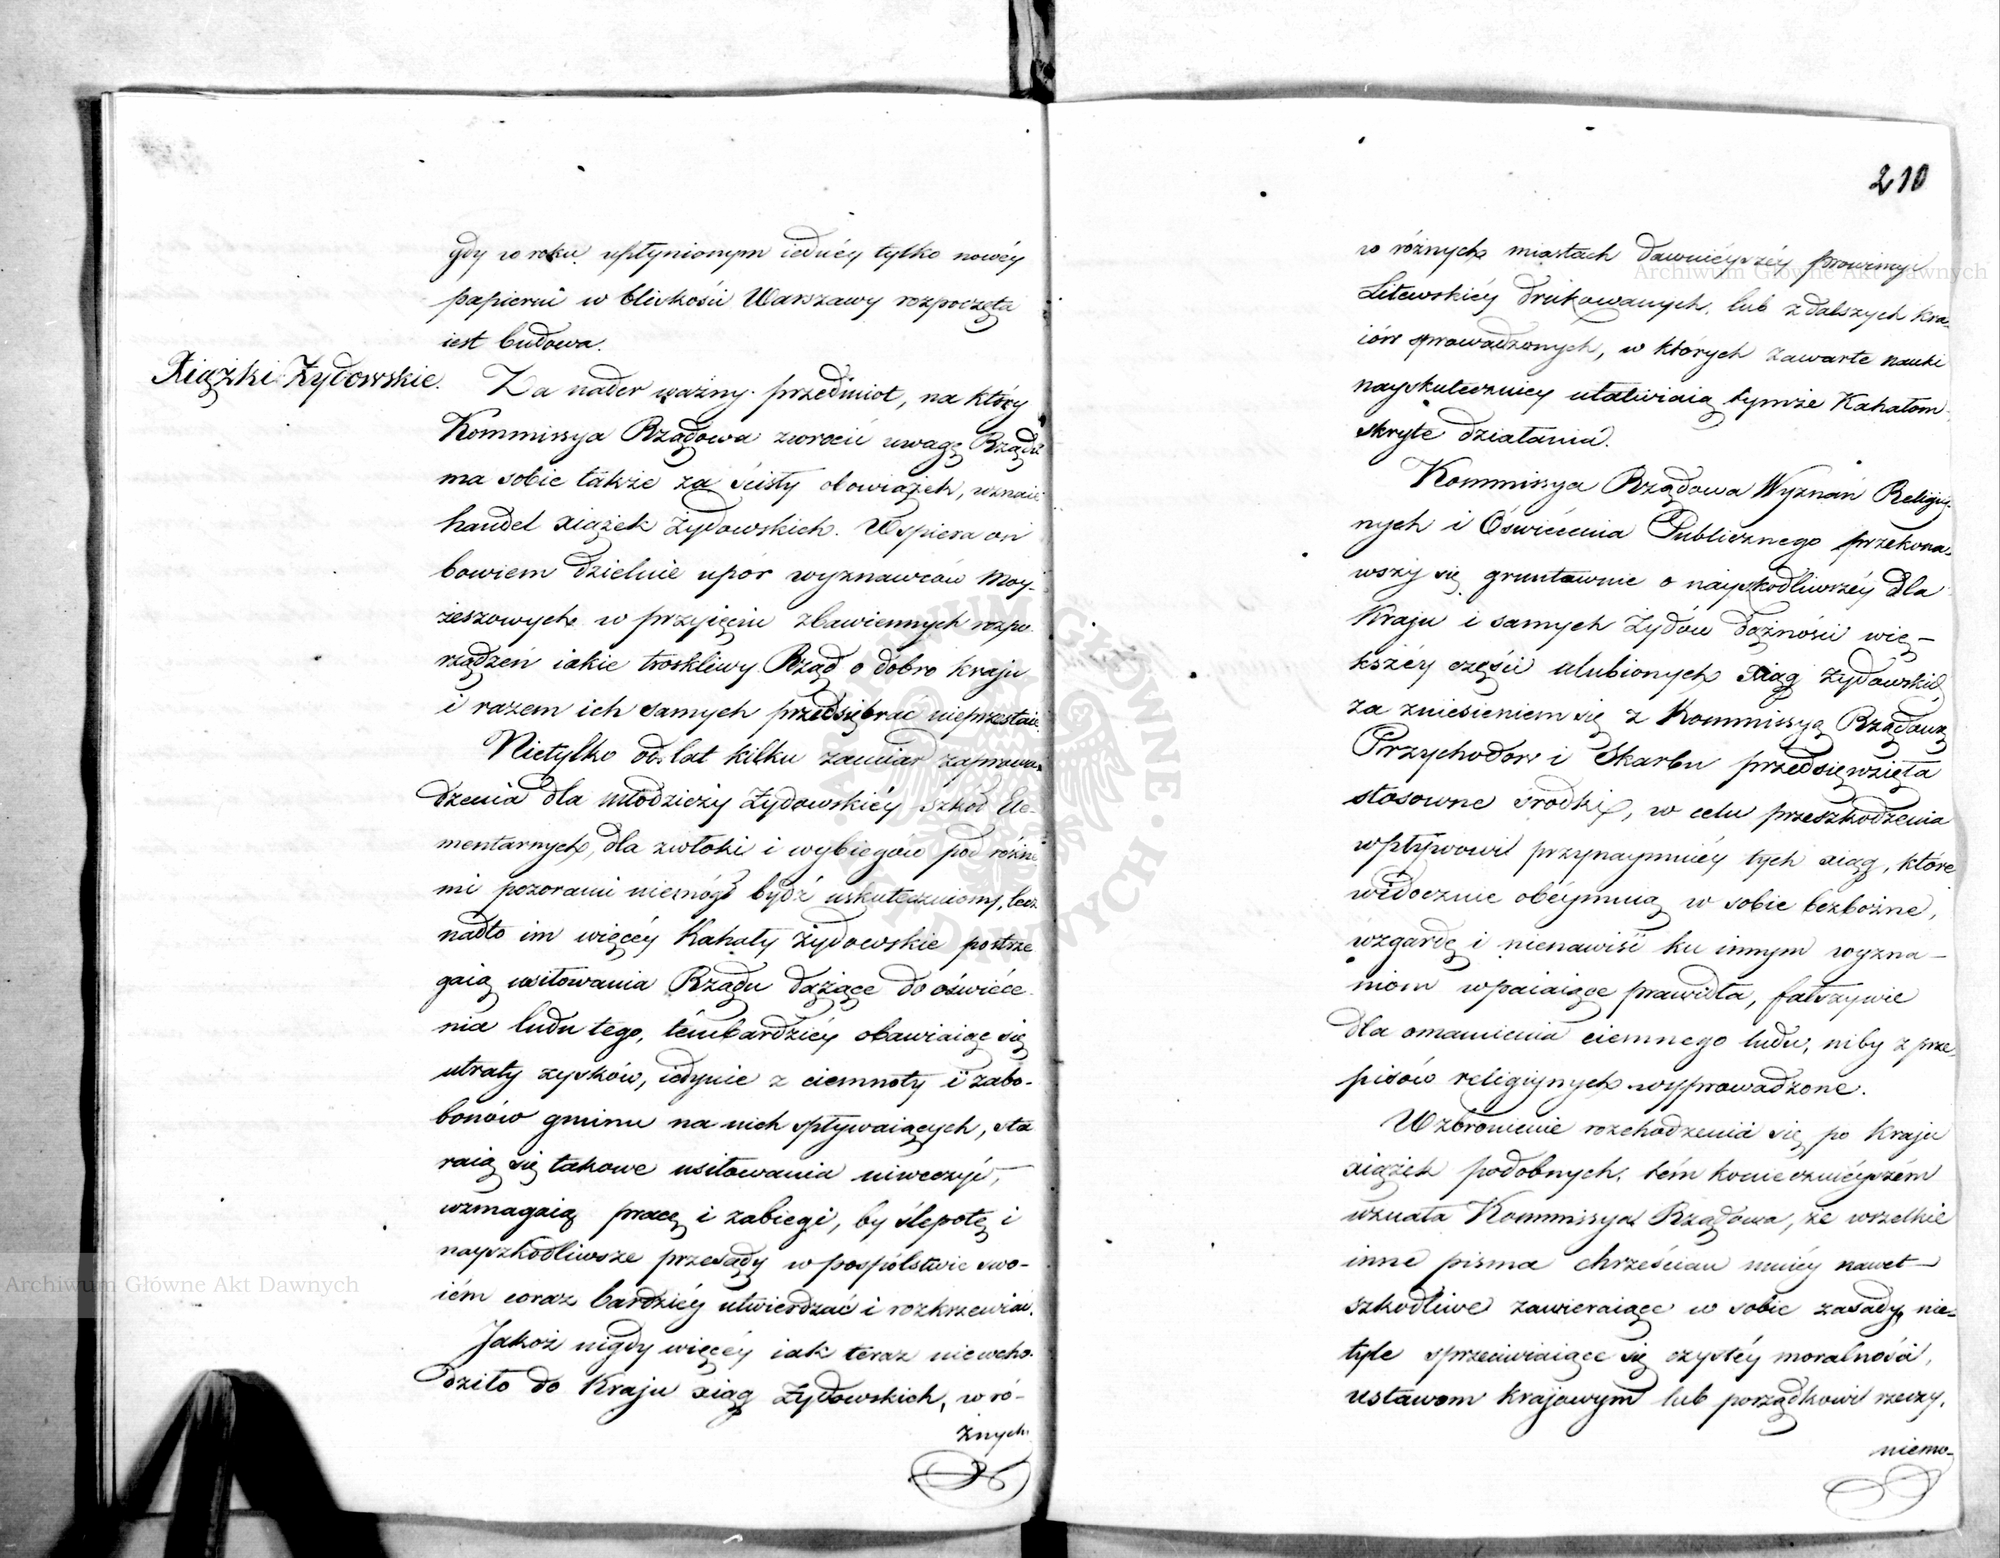 gdy w roku upłynionym iednéy tylko nowéy
papierni w blizkości Warszawy rozpoczęta
iest budowa.
Xiążki Żydowskie.
Za nader ważny przedmiot, na który
Kommissya Rządowa zwrocić uwagę Rządu
ma sobie także za ścisły obowiązek, uznaie
handel xiążek Żydowskich. Wspiera on
bowiem dzielnie upór wyznawców Moy-
żeszowych w przyięciu zbawiennych rozpo-
rządzeń iakie troskliwy Rząd o dobro kraju
i razem ich samych przedsiębrać nieprzestaie.
Nietylko od lat kilku zamiar zaprowa-
dzenia dla młodzieży Żydowskiéy szkół Ele-
mentarnych, dla zwłoki i wybiegów pod różne-
mi pozorami niemógł bydź uskuteczniony, lecz
nadto im więcéy Kahały żydowskie postrze
gaią usiłowania Rządu dążące do oświece-
nia ludu tego, témbardziéy obawiaiąc się
utraty zysków, iedynie z ciemnoty i zabo-
bonów gminu na nich spływaiących, sta
raią się takowe usiłowania niweczyć,
wzmagaią pracę i zabiegi, by ślepotę i
nayszkodliwsze przesądy w pospólstwie swo-
iém coraz bardziéy utwierdzać i rozkrzewiać.
Jakoż nigdy więcéy iak teraz niewcho-
dziło do Kraju xiąg Żydowskich, w ró-
żnych
210
w różnych miastach dawniéyszéy prowincyi
Litewskiéy drukowanych, lub z dalszych kra-
iów sprowadzonych, w których zawarte nauki
nayskuteczniey ułatwiaią tymże Kahałom
skryte działania.
Kommissya Rządowa Wyznań Religiy-
nych i Oświécenia Publicznego przekona-
wszy się gruntownie o nayszkodliwszéy dla
Kraju i samych Żydów dążności wię-
kszéy części ulubionych xiąg Żydowskich,
za zniesieniem się z Kommissyą Rządową
Przychodów i Skarbu przedsięwzięła
stosowne środki, w celu przeszkodzenia
wpływowi przynaymniéy tych xiąg, które
widocznie obéymuią w sobie bezbożne,
wzgardę i nienawiść ku innym wyzna-
niom wpaiaiące prawidła, fałszywie
dla omamienia ciemnego ludu, niby z prze-
pisów religiynych wyprowadzone.
Wzbronienie rozchodzenia się po Kraju
xiążek podobnych, tém koniecznieyszém
uznała Kommissya Rządowa, że wszelkie
inne pisma chrześcian mniéy nawet
szkodliwe zawieraiące w sobie zasady, nie-
tyle sprzeciwiaiące się czystéy moralności,
ustawom krajowym lub porządkowi rzeczy,
niemo-
Archiwum Główne Akt Dawnych
Archiwum Główne Akt Dawnych
ARCHIWUM GŁÓWNE AKT DAWNYCH